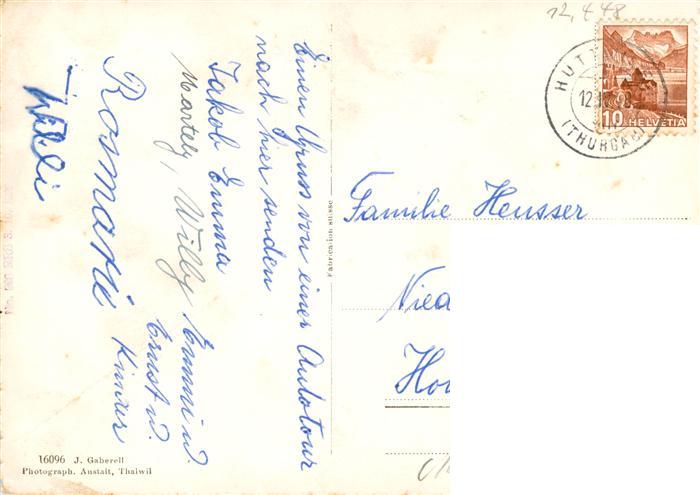 12.4.48
HUTT
12.
(THURGAU)
10 HELVETIA
Einen Gruss von einer Autotour
nach hier senden
Jakob Emma
Martely, Willy Emmi u.
Ernst u.
Rosmarie Kinder
Willi
Fabrication suisse
Familie Heusser
Nied
Ho
16096 J. Gaberell
Photograph. Anstalt, Thalwil